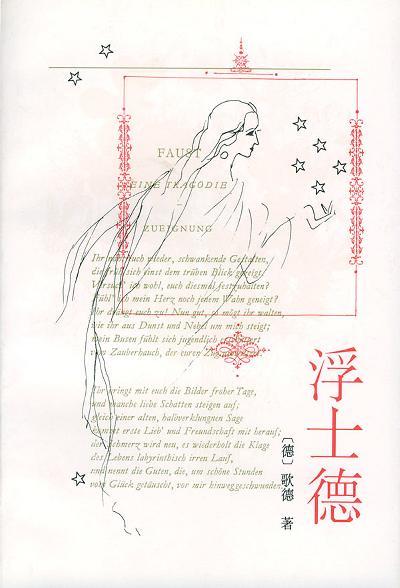 FAUST
EINE TRAGÖDIE
ZUEIGNUNG
Ihr naht euch wieder, schwankende Gestalten,
die früh sich einst dem trüben Blick gezeigt.
Versuch' ich wohl, euch diesmal festzuhalten?
Fühl' ich mein Herz noch jenem Wahn geneigt?
Ihr drängt euch zu! Nun gut, so mögt ihr walten,
wie ihr aus Dunst und Nebel um mich steigt;
mein Busen fühlt sich jugendlich
vom Zauberhauch, der euren Zug
Ihr bringt mit euch die Bilder froher Tage,
und manche liebe Schatten steigen auf;
gleich einer alten, halbverklungnen Sage
kommt erste Lieb' und Freundschaft mit herauf;
der Schmerz wird neu, es wiederholt die Klage
des Lebens labyrinthisch irren Lauf,
und nennt die Guten, die, um schöne Stunden
vom Glück getäuscht, vor mir hinweggeschwunden.
浮士德
〔德〕歌德 著